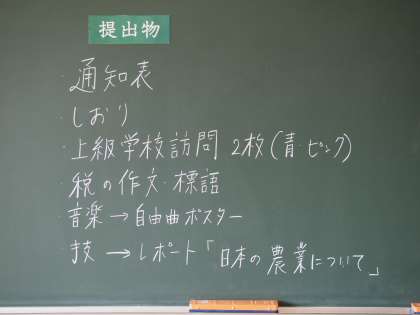 提出物
・通知表
・しおり
・上級学校訪問 2枚(青・ピンク)
・税の作文・標語
・音楽→自由曲ポスター
・技→レポート「日本の農業について」